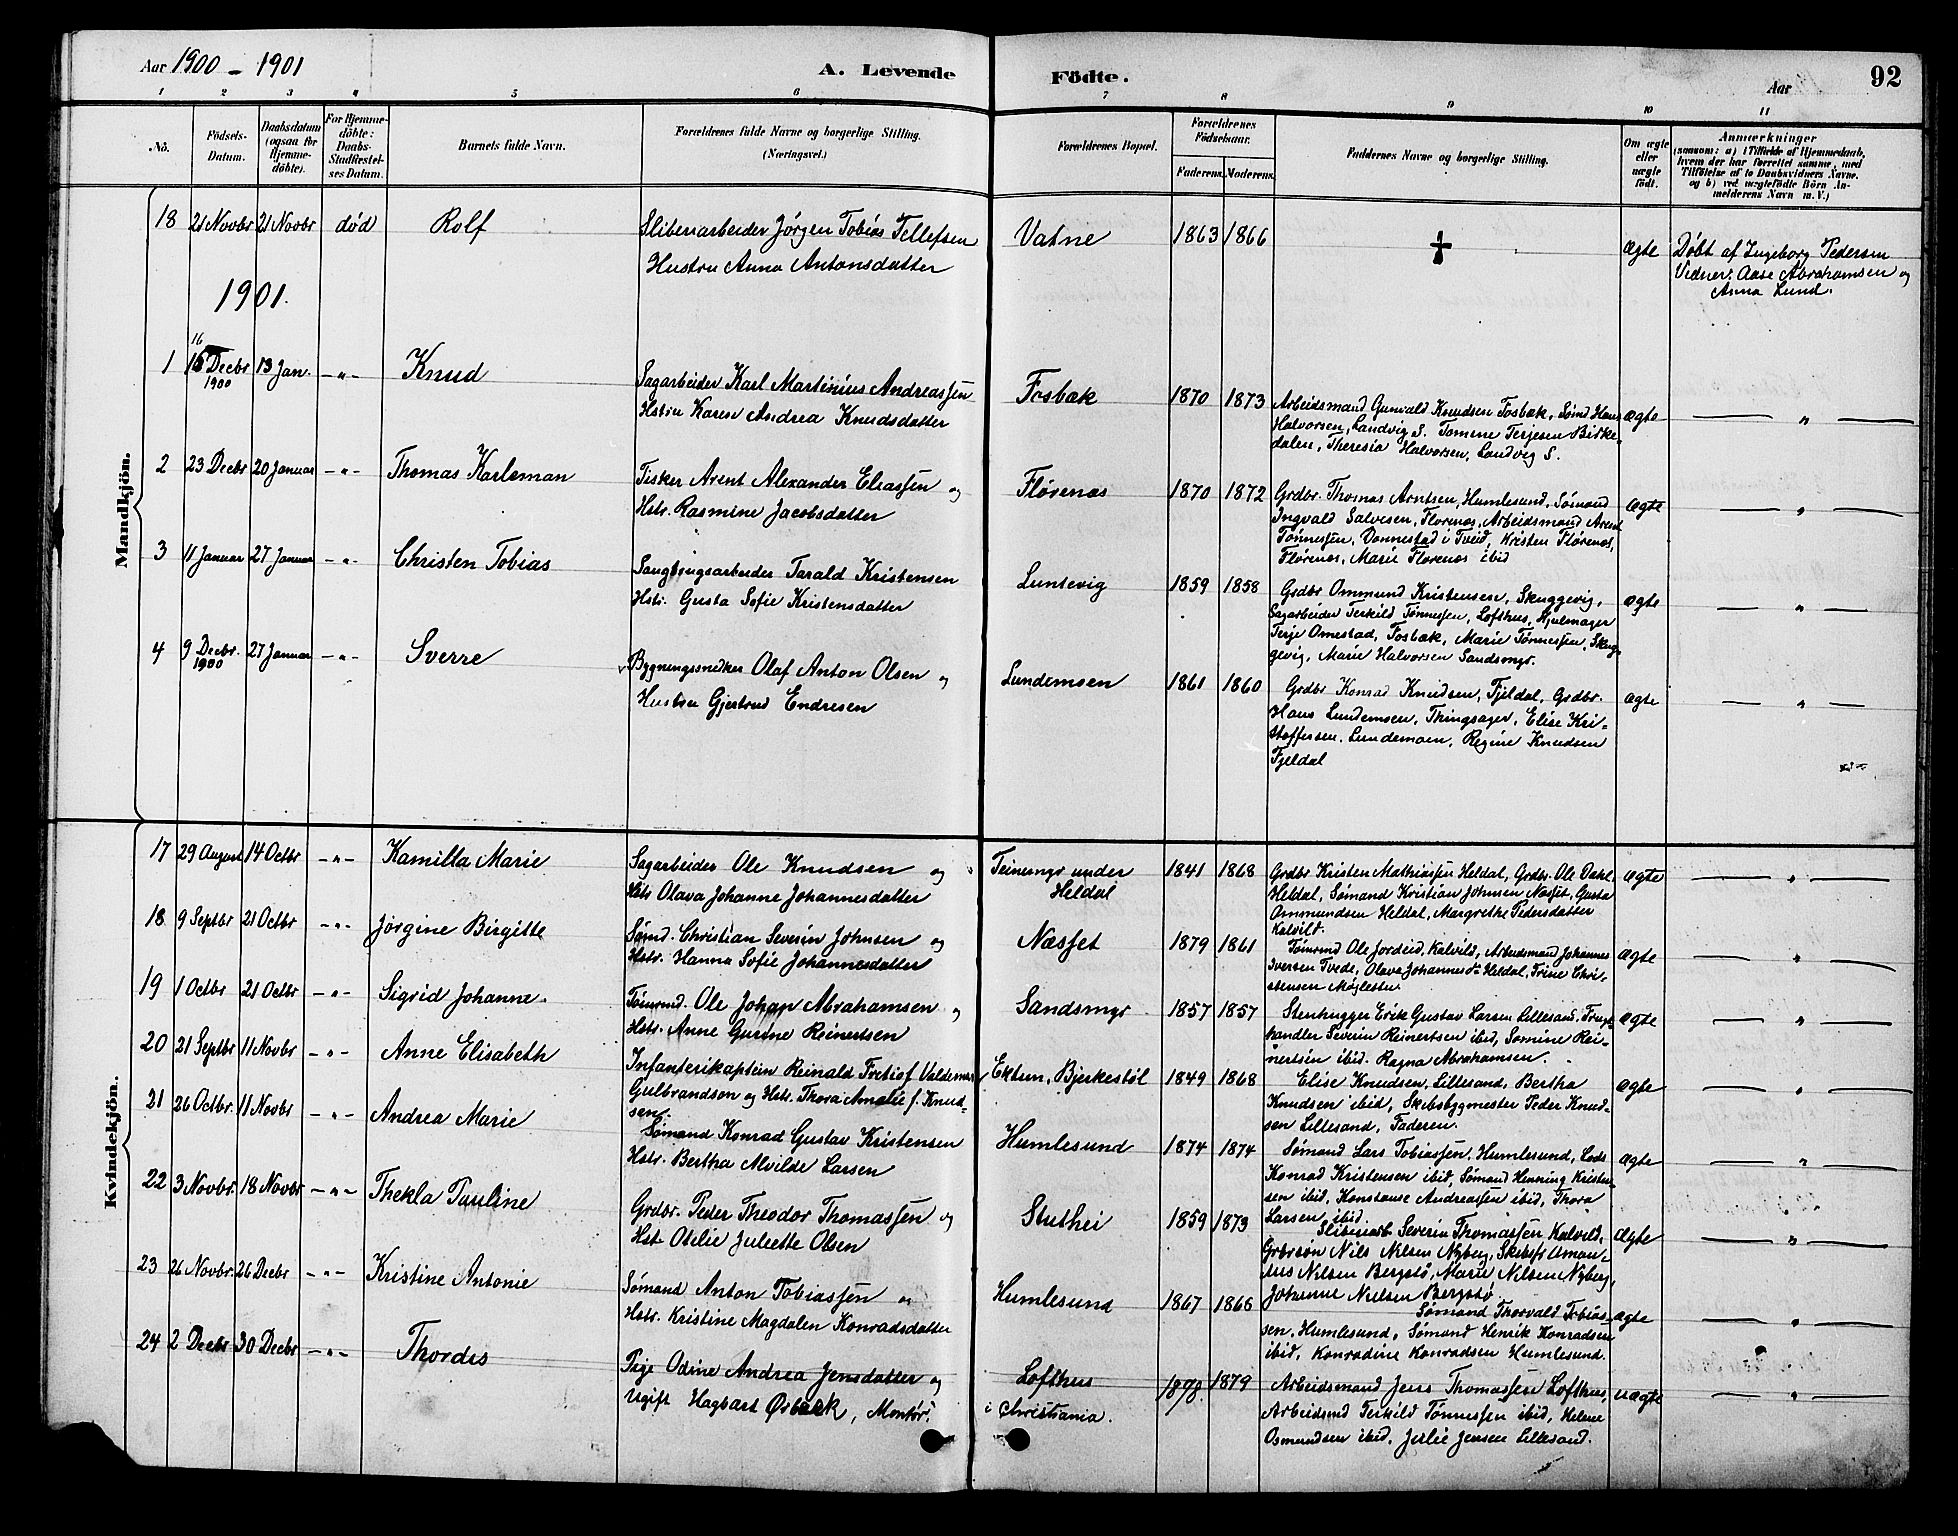 Aar 1900 - 1901
A. Levende Födte.
Aar
92
1 2 3 4 5 6 7 8 9 10 11
No.
Födsels-Datum.
Daabsdatum (ogsaa for Hjemme-döbte).
For Hjemme-döbte: Daabs-Stadfæstel-ses Datum.
Barnets fulde Navn.
Forældrenes fulde Navne og borgerlige Stilling. (Næringsvei.)
Forældrenes Bopæl.
Forældrenes Födselsaar.
Faderens. Moderens.
Faddernes Navne og borgerlige Stilling.
Om ægte eller uægte födt.
Anmærkninger
(saasom: a) i Tilfælde af Hjemmedaab, hvem der har forrettet samme, med Tilföielse af to Daabsvidners Navne, og b) ved uægtefödte Börn An-melderens Navn m. V.)
Mandkjön.
18 21 Novbr 21 Novbr død Rolf
Sliberiarbeider Jørgen Tobias Tellefsen
Hustru Anna Antonsdatter
Vatne 1863 1866 + ægte
Døbt af Ingeborg Pedersen
Vidner: Aase Abrahamsen og
Anna Lund.
1901.
1 16 Decbr 1900 13 Jan. -„- Knud
Sagarbeider Karl Martinius Andreassen
Hstru Karen Andrea Knudsdatter
Fosbæk 1870 1873
Arbeidsmand Gunvald Knudsen Fosbæk, Sømd Hans
Halvorsen, Landvig S. Tomine Terjesen Birke-
dalen, Theresia Halvorsen, Landvig S.
ægte — „ —
2 23 Decbr 20 Januar -„- Thomas Karleman
Fisker Arent Alexander Eliassen og
Hstr. Rasmine Jacobsdatter
Flørenæs 1870 1872
Grdbr. Thomas Arntsen, Humlesund, Sømand
Ingvald Salvesen, Florenæs, Arbeidsmand Arent
Tønnesen, Vonnestad i Tveid, Kristen Flørenæs,
Flørenæs, Marie Florenæs ibid
ægte — „ —
3 11 Januar 27 Januar -„- Christen Tobias
Sagbrugsarbeider Tarald Kristensen
Hstr. Gusta Sofie Kristensdatter
Luntevig 1859 1858
Grdbr Ommund Kristensen, Skuggevig,
Sagarbeider Terkild Tønnessen, Lofthus, Hjulmager
Terje Omestad, Fosbæk, Marie Tønnessen, Skug-
gevig, Marie Halvorsen Sandsmyr.
ægte — „ —
4 9 Decbr. 1900 27 Januar -„- Sverre
Bygningssnedker Olaf Anton Olsen og
Hustru Gjertrud Endresen
Lundemoen 1861 1860
Grdbr Konrad Knudsen, Fjeldal, Grdbr.
Hans Lundemoen, Thingsager, Elise Kri-
stoffersen, Lundemoen, Regine Knudsen
Fjeldal
ægte — „ —
Kvindekjön.
17 29 August 14 Octbr -„- Kamilla Marie
Sagarbeider Ole Knudsen og
Hstr Olava Johanne Johannesdatter
Teinemyr under
Heldal
1841 1868
Grdbr Kristen Mathiassen Heldal, Grdbr. Ole Dahl
Heldal, Sømand Kristian Johnsen Næsset, Gusta
Ommundsen Heldal, Margrethe Pedersdatter
Kalvild.
ægte — „ —
18 9 Septbr 21 Octbr -„- Jørgine Birgitte
Sømd. Christian Severin Johnsen og
Hstr. Hanna Sofie Johannesdatter
Næsset 1879 1861
Tømrmd Ole Jordeid, Kalvild, Arbeidsmand Johannes
Iversen Tvede, Olava Johannesdr Heldal, Trine Chri-
stensen Møglestu.
ægte — „ —
19 1 Octbr 21 Octbr -„- Sigrid Johanne.
Tømrmd. Ole Johan Abrahamsen og
Hstr. Anne Gurine Reinertsen
Sandsmyr 1857 1857
Stenhugger Erik Gustav Larsen Lillesand, Frugt-
handler Severin Reinertsen ibid, Somine Rei-
nertsen ibid. Ragna Abrahamsen.
ægte — „ —
20 21 Septbr 11 Novbr -„- Anne Elisabeth
Infanterikaptein Reinald Fretiof Valdemar
Gulbrandson og Hstr. Thora Amalie f. Knud-
sen.
Ektun, Bjerkestøl 1849 1868
Elise Knudsen, Lillesand, Bertha
Knudsen ibid, Skibsbygmester Peder Knud-
sen Lillesand, Faderen.
ægte — „ —
21 26 Octbr. 11 Novbr -„- Andrea Marie
Sømand Konrad Gustav Kristensen
Hstr. Bertha Alvilde Larsen
Humlesund 1874 1874
Sømand Lars Tobiassen, Humlesund, Lods
Konrad Kristensen ibid, Sømand Henning Kristen-
sen ibid, Konstanse Andreassen ibid, Thora
Larsen ibid
ægte — „ —
22 3 Novbr. 18 Novbr -„- Thekla Pauline
Grdbr. Peder Theodor Thomassen og
Hst. Otelie Juliette Olsen
Stuthei 1859 1873
Sliberiarb Severin Thomassen Kalvild,
Grbrsøn Nils Nilsen Nyberg, Skibsfr Aman-
dus Nilsen Bergstø, Marie Nilsen Nyberg,
Johanne Nielsen Bergstø
ægte — „ —
23 26 Novbr. 26 Decbr -„- Kristine Antonie
Sømand Anton Tobiassen og
Hstr. Kristine Magdalen Konradsdatter
Humlesund 1867 1868
Sømand Thorvald Tobias-
sen, Humlesund, Sømand Henrik Konradsen
ibid, Konradine Konradsen Humlesund.
ægte — „ —
24 2 Decbr 30 Decbr -„- Thordis
Pige Odine Andrea Jensdatter og
Ugift Hagbart Ørbæk, Montør.
Lofthus
i Christiania.
1878. 1879
Arbeidsmand Jens Thomassen Lofthus,
Arbeidsmd Terkild Tønnessen ibid, Helene
Osmundsen ibid, Jerlie Jensen Lillesand.
uægte — „ —